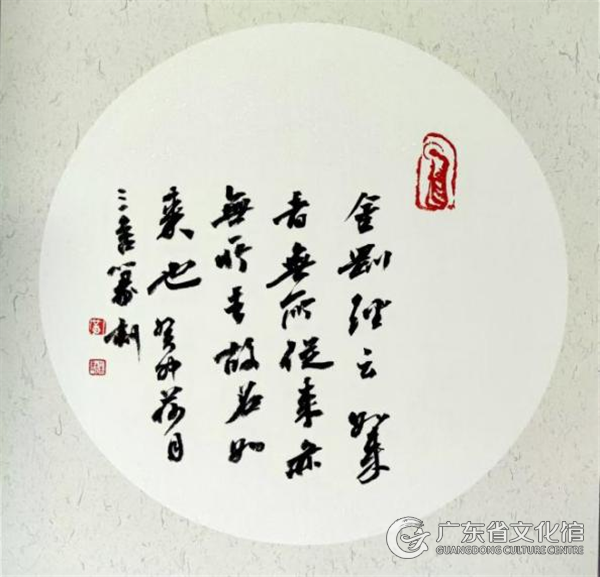 金剛經云如來
者無所從來亦
無所去故名如
來也 癸卯荷月
广东省文化馆
GUANGDONG CULTURE CENTRE